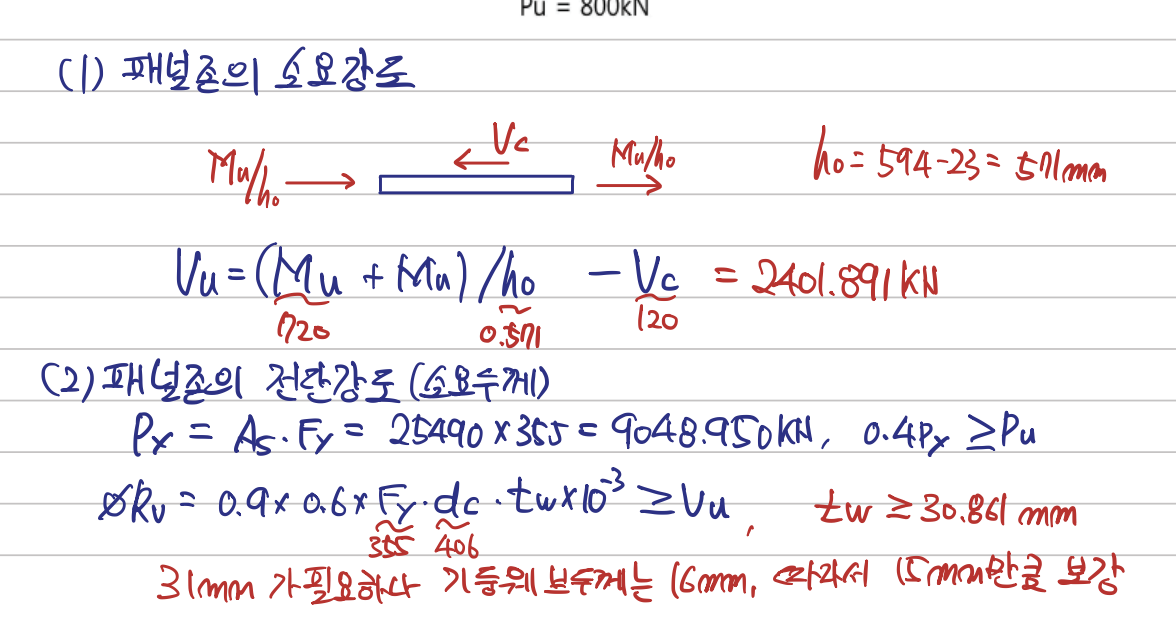 Pu = 800kN
(1) 패널존의 소요강도
Mu/ho Vc Mu/ho ho = 594-23 = 571mm
Vu = (Mu + Mu) / ho - Vc = 2401.891 kN
720 0.571 120
(2) 패널존의 전단강도 (소요두께)
Py = As · Fy = 25490 × 355 = 9048.950kN, 0.4Py ≥ Pu
ØRv = 0.9 × 0.6 × Fy · dc · tw × 10⁻³ ≥ Vu, tw ≥ 30.861 mm
355 406
31mm가 필요하나 기둥웨브두께는 16mm, 따라서 15mm만큼 보강